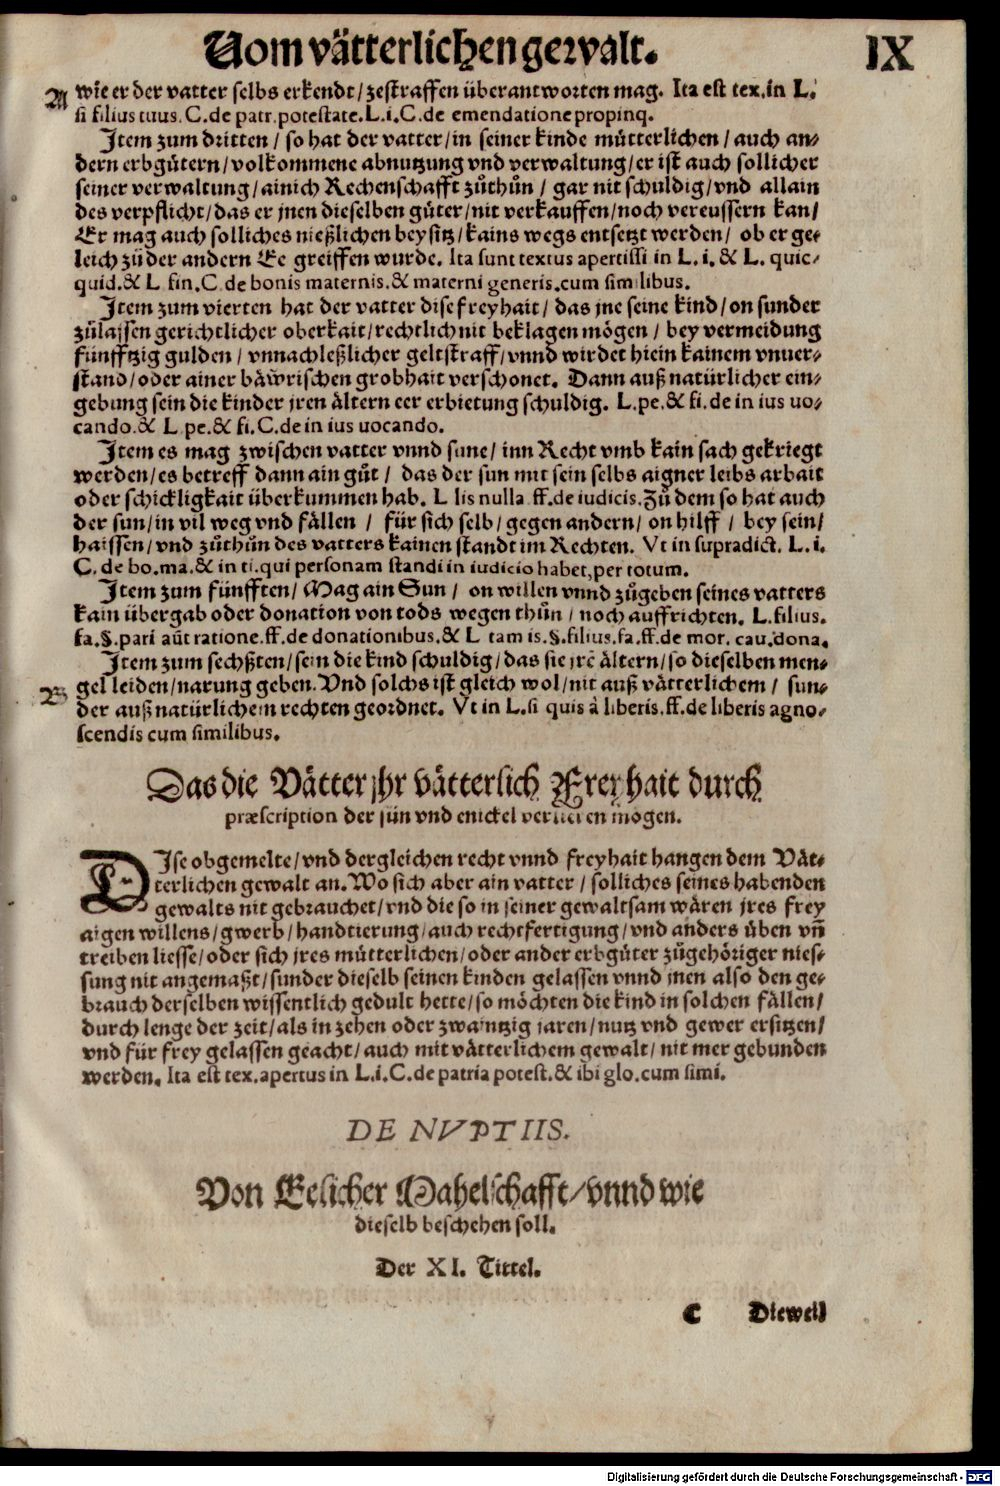 Vom vätterlichen gewalt. IX
A wie er der vatter selbs erkendt/zestraffen überantworten mag. Ita est tex.in L.
si filius tuus.C.de patr.potestate.L.i.C.de emendatione propinq.
Item zum dritten/so hat der vatter/in seiner kinde mütterlichen/auch an-
dern erbgütern/volkommene abnutzung vnd verwaltung/er ist auch sollicher
seiner verwaltung/ainich Rechenschafft zůthůn/gar nit schuldig/vnd allain
des verpflicht/das er jnen dieselben güter/nit verkauffen/noch vereussern kan/
Er mag auch solliches nießlichen beysitz/kains wegs entsetzt werden/ob er ge-
leich zů der andern Ee greiffen wurde. Ita sunt textus apertissi in L.i.& L. quic-
quid.& L fin.C.de bonis maternis.& materni generis.cum similibus.
Item zum vierten hat der vatter dise freyhait/das jne seine kind/on sunder
zůlassen gerichtlicher oberkait/rechtlich nit beklagen mögen/bey vermeidung
fünfftzig gulden/vnnachleßlicher geltstraff/vnnd wirdet hiein kainem vnuer-
stand/oder ainer bäwrischen grobhait verschonet. Dann auß natürlicher ein-
gebung sein die kinder jren ältern eer erbietung schuldig. L.pe.& fi.de in ius uo-
cando.& L pe.& fi.C.de in ius uocando.
Item es mag zwischen vatter vnnd sune/inn Recht vmb kain sach gekriegt
werden/es betreff dann ain gůt/das der sun mit sein selbs aigner leibs arbait
oder schickligkait überkummen hab. L lis nulla ff.de iudicis.Zů dem so hat auch
der sun/in vil weg vnd fällen/für sich selb/gegen andern/on hilff/bey sein/
haissen/vnd zůthůn des vatters kainen standt im Rechten. Vt in supradict. L.i.
C.de bo.ma.& in ti.qui personam standi in iudicio habet,per totum.
Item zum fünfften/Mag ain Sun/on willen vnnd zůgeben seines vatters
kain übergab oder donation von tods wegen thůn/noch auffrichten. L.filius.
fa.§.pari aūt ratione.ff.de donationibus.& L tam is.§.filius.fa.ff.de mor.cau.dona.
Item zum sechßten/sein die kind schuldig/das sie jrē ältern/so dieselben men-
B gel leiden/narung geben.Vnd solchs ist gleich wol/nit auß vätterlichem/sun-
der auß natürlichem rechten geordnet. Vt in L.si quis à liberis.ff.de liberis agno-
scendis cum similibus.
Das die Vätter jhr vätterlich Freyhait durch
præscription der sün vnd enickel verlieren mögen.
DIse obgemelte/vnd dergleichen recht vnnd freyhait hangen dem Vät-
terlichen gewalt an.Wo sich aber ain vatter/solliches seines habenden
gewalts nit gebrauchet/vnd die so in seiner gewaltsam wären jres frey
aigen willens/gwerb/handtierung/auch rechtfertigung/vnd anders üben vñ
treiben liesse/oder sich jres mütterlichen/oder ander erbgüter zůgehöriger nies-
sung nit angemaßt/sunder dieselb seinen kinden gelassen vnnd jnen also den ge-
brauch derselben wissentlich gedult hette/so möchten die kind in solchen fällen/
durch lenge der zeit/als in zehen oder zwaintzig jaren/nutz vnd gewer ersitzen/
vnd für frey gelassen geacht/auch mit vätterlichem gewalt/nit mer gebunden
werden. Ita est tex.apertus in L.i.C.de patria potest.& ibi glo.cum simi.
DE NVPTIIS.
Von Eelicher Mahelschafft/vnnd wie
dieselb beschehen soll.
Der XI. Tittel.
C Dieweil
Digitalisierung gefördert durch die Deutsche Forschungsgemeinschaft - DFG